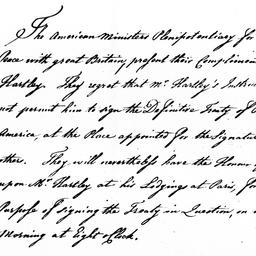 The American Ministers Plenipotentiary for
Peace with great Britain, present their Complimen
Hartley. They regret that Mr. Hartley's Instruc
not permit him to sign the Definitive Treaty of
America, at the Place appointed for the Signatur
others. They will nevertheless have the Honour of
upon Mr. Hartley at his Lodgings at Paris, for
Purpose of signing the Treaty in Question, on
Morning at Eight o'Clock.